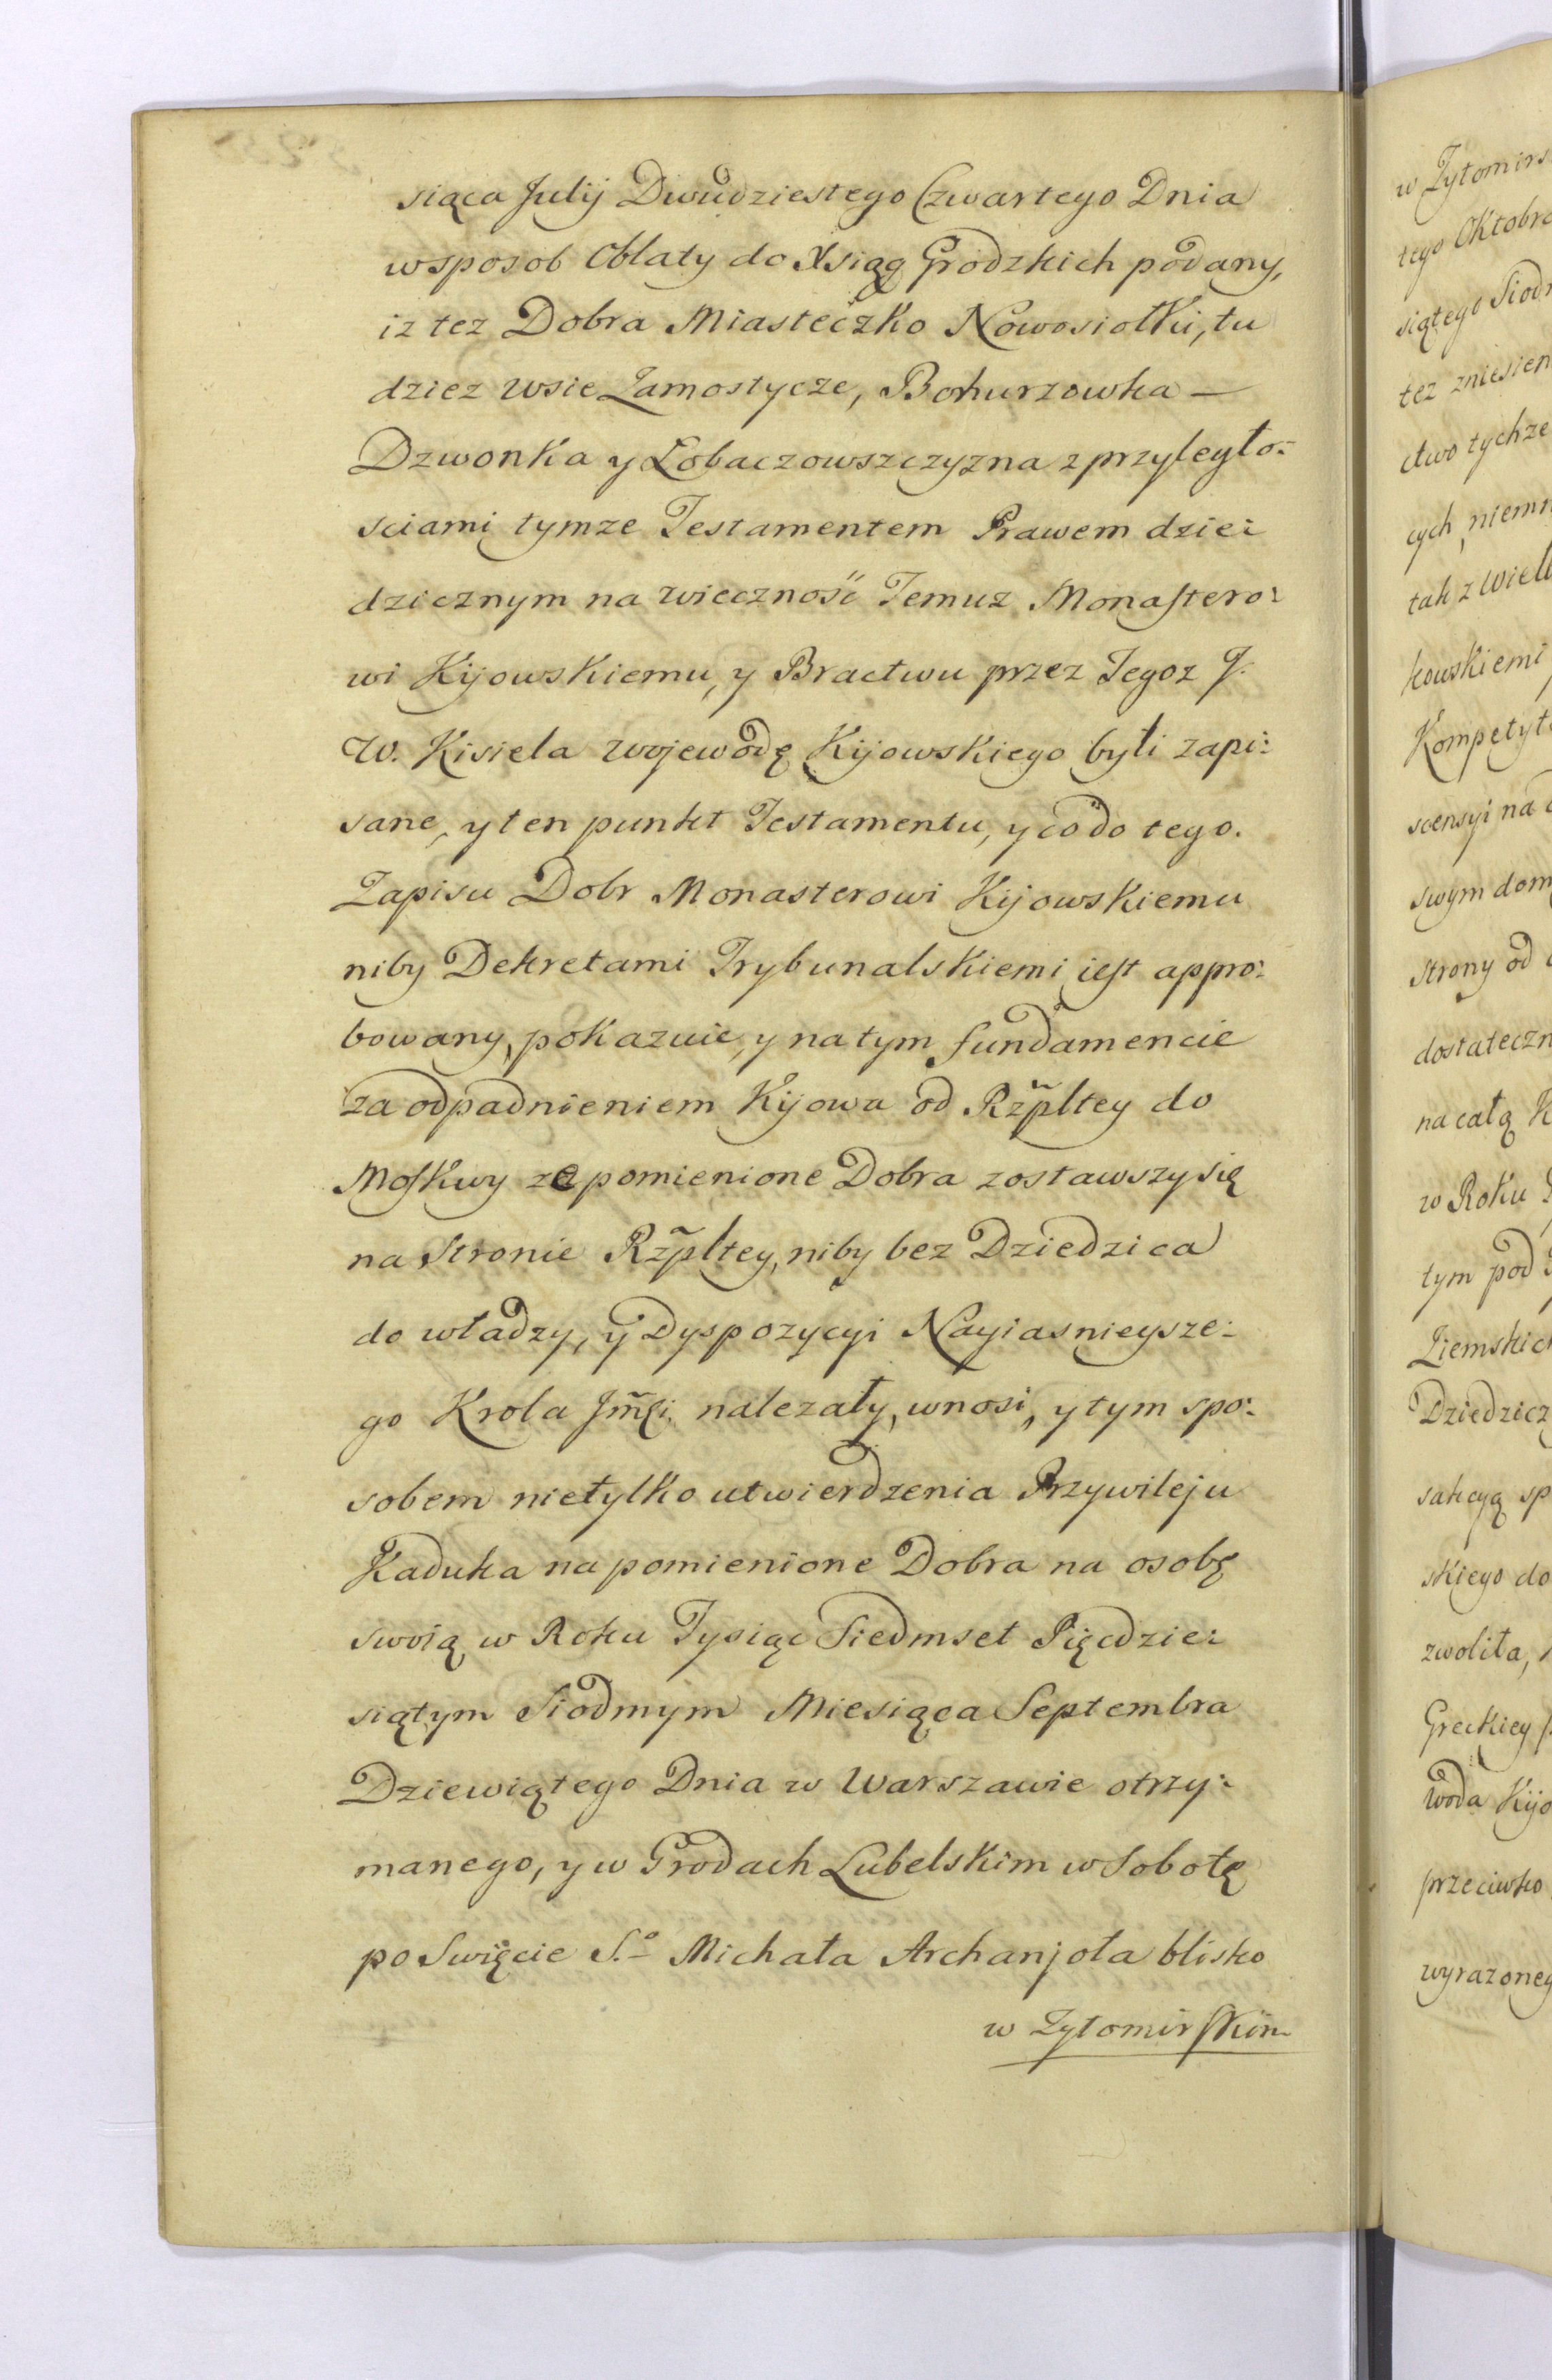 siąca Julij Dwudziestego Czwartego Dnia
wsposob Oblaty do Xsiąg Grodzkich podany,
iz tez Dobra Miasteczko Nowosiołki, tu
dziez wsie Zamostycze, Bohurzowka —
Dzwonka y Łobaczowszczyzna z przyległo=
sciami tymze Testamentem Prawem dzie=
dzicznym na wieczność Temuz Monasterо=
wi Kijowskiemu, y Bractwu przez Tegoz J.
W. Kisiela Wojewodę Kijowskiego byłi zapi=
sane, y ten punkt Testamentu, y co do tego.
Zapisu Dobr Monasterowi Kijowskiemu
niby Dekretami Trybunalskiemi iest appro=
bowany, pokazuie, y na tym fundamencie
za odpadnieniem Kijowa od Rzpltey do
Moskwy ze pomienione Dobra zostawszy się
na Stronie Rzpltey, niby bez Dziedzica
do władzy, y Dyspozycyi Nayiasnieysze=
go Krola Jmci nalezały, wnosi, y tym spo=
sobem nietylko utwierdzenia Przywileju
Kaduka na pomienione Dobra na osobę
swoią w Roku Tysiąc Siedmset Pięcdzie=
siątym Siodmym Miesiąca Septembra
Dziewiątego Dnia w Warszawie otrzy=
manego, y w Grodach Lubelskim w Sobotę
po Swięcie S.º Michała Archanjoła blisko
w Zytomirskim
w Zytomirs
tego Oktobra
siątego Siod
tez zniesien
ctwo tychze
cych, niemn
tak z Wiel
kowskiemi
Kompetyt
scensyi na
swym dom
Strony od
dostateczn
na całą K
w Roku
tym pod
Ziemskich
Dziedzicz
sakcyą sp
skiego do
zwoliła,
Greckiey
woda Kijo
przeciwko
wyrazoney